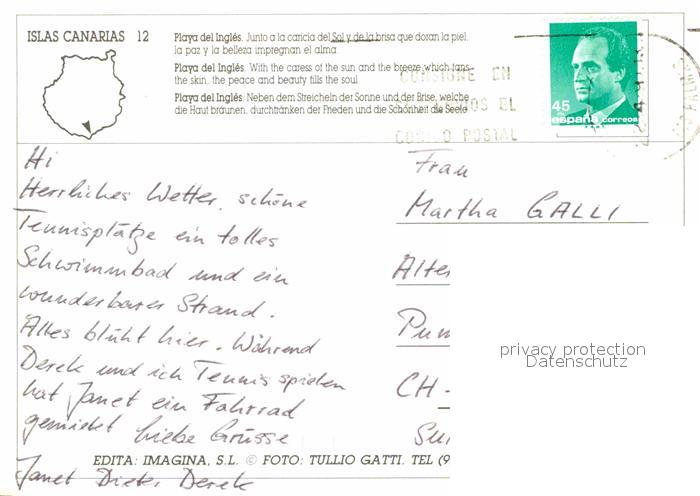 ISLAS CANARIAS 12
Playa del Inglés. Junto a la caricia del Sol y de la brisa que doran la piel,
la paz y la belleza impregnan el alma
Playa del Inglés: With the caress of the sun and the breeze which tans
the skin, the peace and beauty fills the soul
Playa del Inglés: Neben dem Streicheln der Sonne und der Brise, welche
die Haut bräunen, durchtränken der Frieden und die Schönheit die Seele
CONSIGNE EN
OS EL
CODIGO POSTAL
45
españa correos
Hi
Herrliches Wetter, schöne
Tennisplätze ein tolles
Schwimmbad und ein
wunderbarer Strand.
Alles blüht hier. Während
Derek und ich Tennis spielen
hat Janet ein Fahrrad
gemietet Liebe Grüsse
Janet Dieter Derek
Frau
Martha GALLI
Alte
Pum
CH-
privacy protection
Datenschutz
EDITA: IMAGINA, S.L. © FOTO: TULLIO GATTI. TEL (9